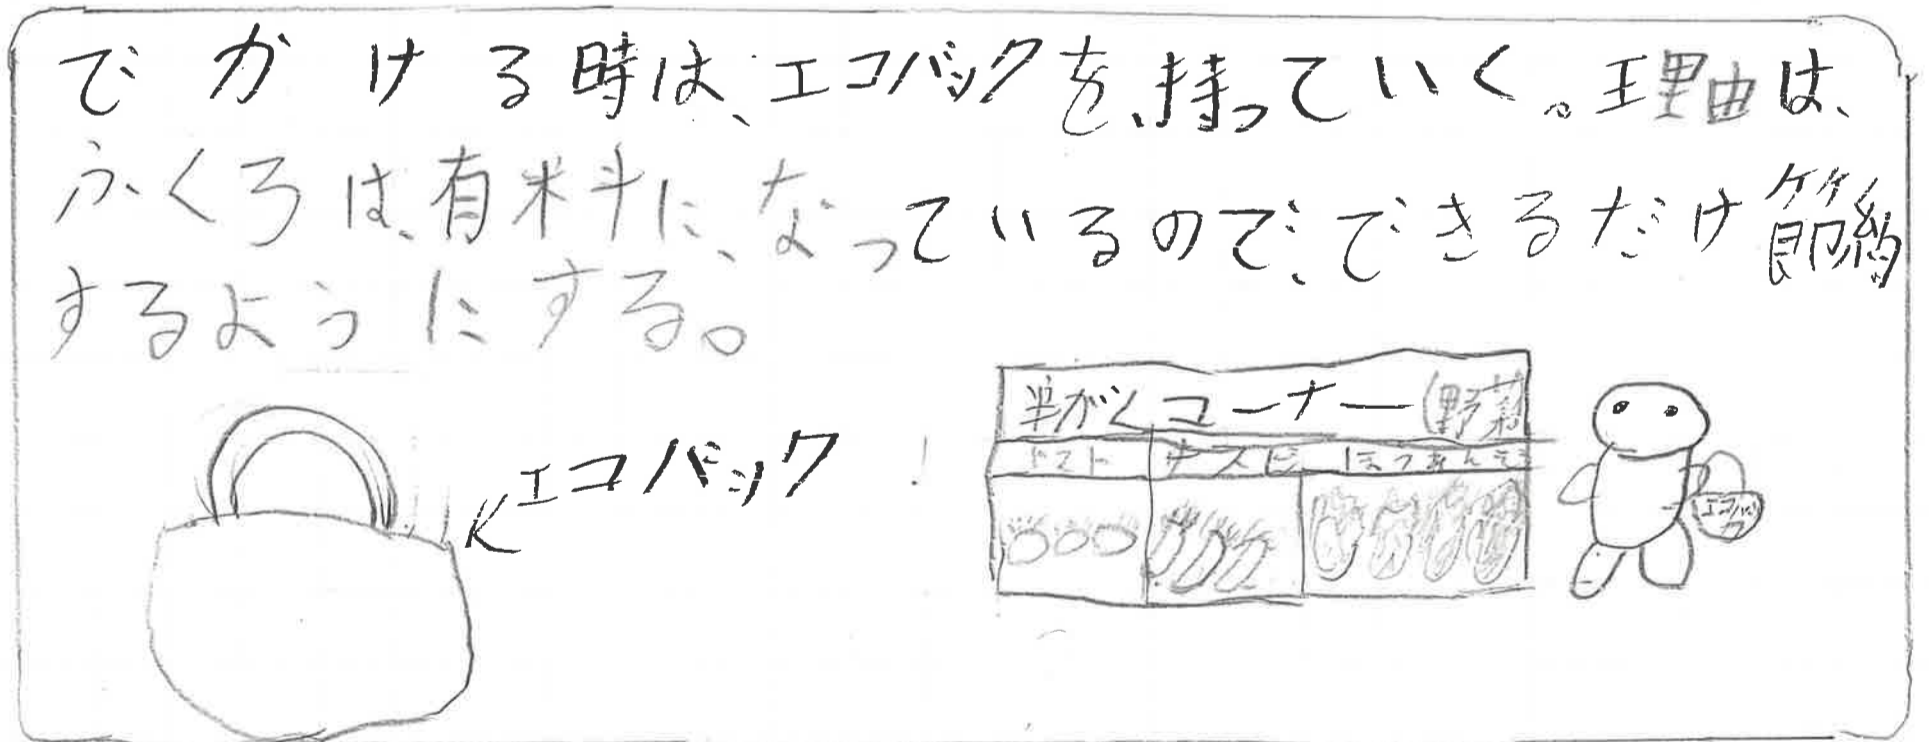 でかける時は、エコバックを、持っていく。理由は、
ふくろは、有料に、なっているので、できるだけ節約
するようにする。
エコバック
半がくコーナー(野菜
トマト ナスビ ほうれんそ
エコバック